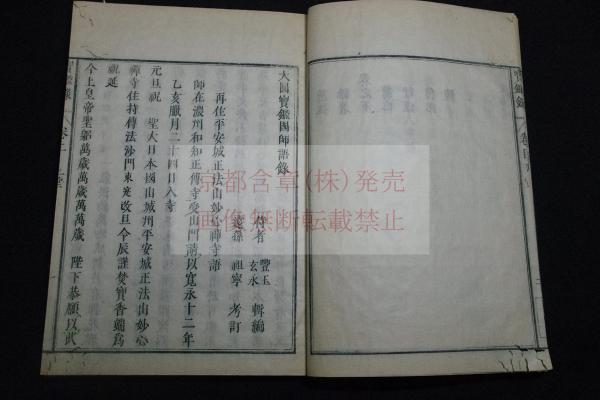 大圓寶鑑國師語錄
侍者
豐玉
玄永
輯編
遠孫
祖寧
考訂
再住平安城正法山妙心禪寺語
師在濃州和知正傳寺受山門請以寬永十二年
乙亥臘月二十四日入寺
元旦祝
聖大日本國山城州平安城正法山妙心
禪寺住持傳法沙門東寔改旦今辰謹焚寶香端為
祝延
今上皇帝聖躬萬歲萬歲萬萬歲
陛下恭願以武
寶鑑錄
京都含章(株)発売
画像無断転載禁止